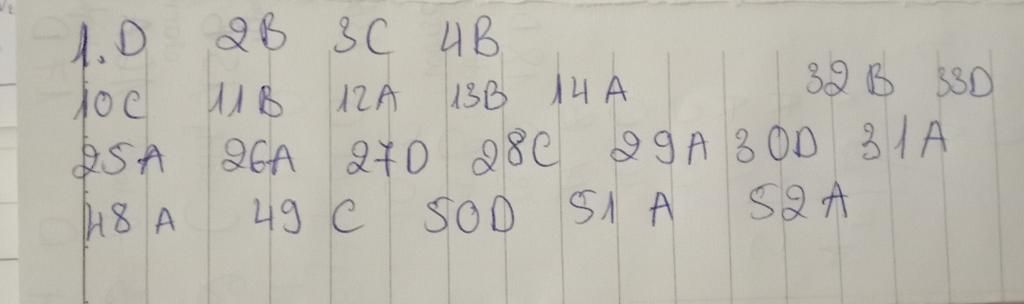 1. D 2B 3C 4B
10C 11B 12A 13B 14A 32B 33D
25A 26A 27D 28C 29A 30D 31A
48A 49C 50D 51A 52A